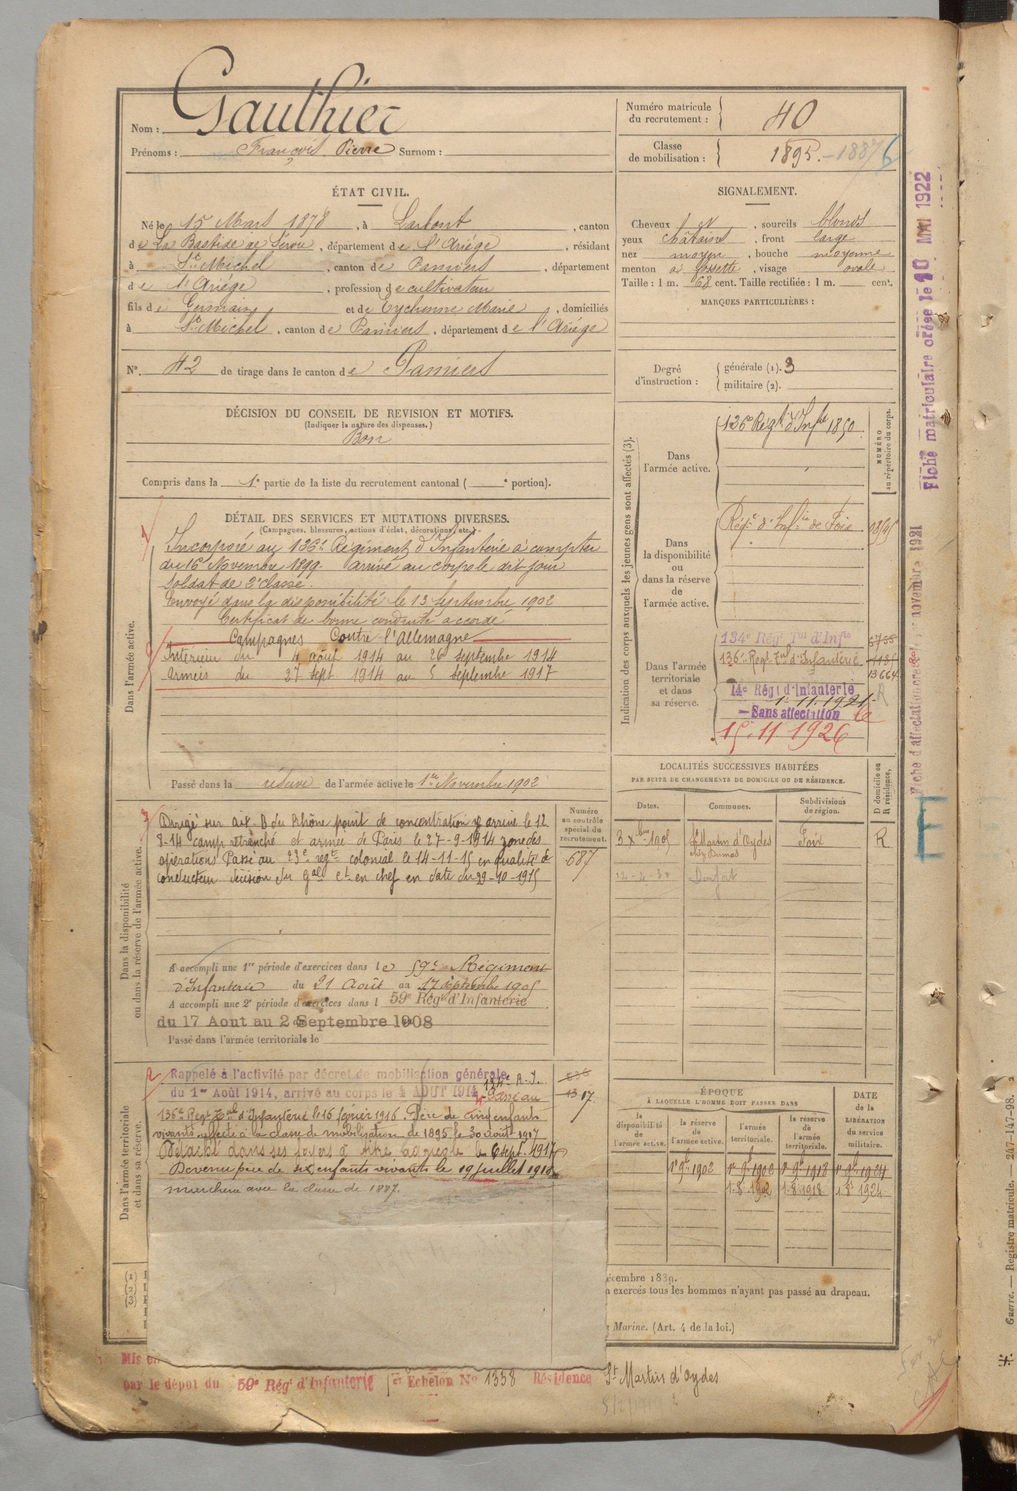 Nom : Gauthier
Prénoms : François Pierre Surnom :
Numéro matricule du recrutement : 40
Classe de mobilisation : 1895.-1887
ÉTAT CIVIL.
Né le 15 Mars 1878, à , canton
de La Bastide de Sérou, département de l'Ariège, résidant
à St Michel, canton de Pamiers, département
de l'Ariège, profession de cultivateur
fils de Germain et de Eychenne Marie, domiciliés
à St Michel, canton de Pamiers, département de l'Ariège
N° 42 de tirage dans le canton de Pamiers
SIGNALEMENT.
Cheveux , sourcils blonds
yeux châtains, front large
nez moyen, bouche moyenne
menton à fossette, visage ovale
Taille : 1 m. 68 cent. Taille rectifiée : 1 m. cent.
MARQUES PARTICULIÈRES :
Degré d'instruction : générale (1). 3
militaire (2).
DÉCISION DU CONSEIL DE REVISION ET MOTIFS.
(Indiquer la nature des dispenses.)
Bon
Compris dans la 1e partie de la liste du recrutement cantonal ( e portion).
DÉTAIL DES SERVICES ET MUTATIONS DIVERSES.
(Campagnes, blessures, actions d'éclat, décorations, etc.)
Dans l'armée active.
Incorporé au 126e Régiment d'Infanterie à compter
du 16 Novembre 1899 arrivé au corps le dit jour
soldat de 2e classe.
Envoyé dans la disponibilité le 13 Septembre 1902
Certificat de bonne conduite accordé
Campagnes Contre l'Allemagne
Intérieur du 4 août 1914 au 26 septembre 1914
Armées du 27 sept 1914 au 5 septembre 1917
Passé dans la réserve de l'armée active le 1er Novembre 1902
Indication des corps auxquels les jeunes gens sont affectés (3).
NUMÉRO au répertoire du corps.
Dans l'armée active.
126e Régt d'Infie 1850
Dans la disponibilité ou dans la réserve de l'armée active.
Régt d'Infie de Foix
Dans l'armée territoriale et dans sa réserve.
134e Régt Tal d'Infie
136e Régt Tal d'Infanterie
13664
14e Régt d'Infanterie R
1.11.1921
Sans affectation le
15.11.1926
Fiche matriculaire créée le 10 MAI 1922
Dans la disponibilité ou dans la réserve de l'armée active.
Dirigé sur Aix B du Rhône point de concentration y arrive le 12
8-14 camp retranché et armée de Paris le 27-9-1914 zone des
opérations Passé au 23e regt colonial le 14-11-15 en qualité de
conducteur décision du Gal Ct en chef en date du 29-10-1915
Numéro au contrôle spécial du recrutement.
687
A accompli une 1re période d'exercices dans le 59e Régiment
d'Infanterie du 21 Août au 17 septembre 1905
A accompli une 2e période d'exercices dans l 59e Régt d'Infanterie
du 17 Aout au 2 Septembre 1908
Passé dans l'armée territoriale le
LOCALITÉS SUCCESSIVES HABITÉES
PAR SUITE DE CHANGEMENTS DE DOMICILE OU DE RÉSIDENCE.
Dates. Communes. Subdivisions de région. D domicile ou R résidence.
3 Xbre 1905 St Martin d'Oydes Foix R
E
Dans l'armée territoriale et dans sa réserve.
Rappelé à l'activité par décret de mobilisation générale
du 1er Août 1914, arrivé au corps le 4 AOUT 1914
136e Régt Tal d'Infanterie le 16 février 1916 Père de cinq enfants
vivants affecté à la classe de mobilisation de 1895 le 30 août 1917
Détaché dans ses foyers le 6 sept. 1917
Devenu père de six enfants vivants le 19 juillet 1918
marchera avec la classe de 1887.
ÉPOQUE
À LAQUELLE L'HOMME DOIT PASSER DANS
la disponibilité de l'armée active. la réserve de l'armée active. l'armée territoriale. la réserve de l'armée territoriale.
DATE de la LIBÉRATION du service militaire.
1er 9bre 1902 1918 1924
1-8-1918 1924
écembre 1889.
exercés tous les hommes n'ayant pas passé au drapeau.
Marine. (Art. 4 de la loi.)
par le dépôt du 59e Régt d'Infanterie Echelon No 1358 Résidence St Martin d'Oydes
Guerre. — Registre matricule. — 247-147-98.